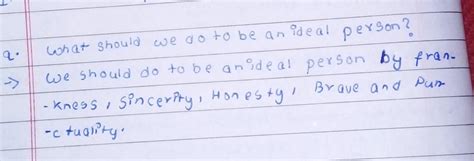 Q. What should we do to be an ideal person?
-> We should do to be an ideal person by fran-
-kness, Sincerity, Honesty, Brave and Pun
-ctuality.